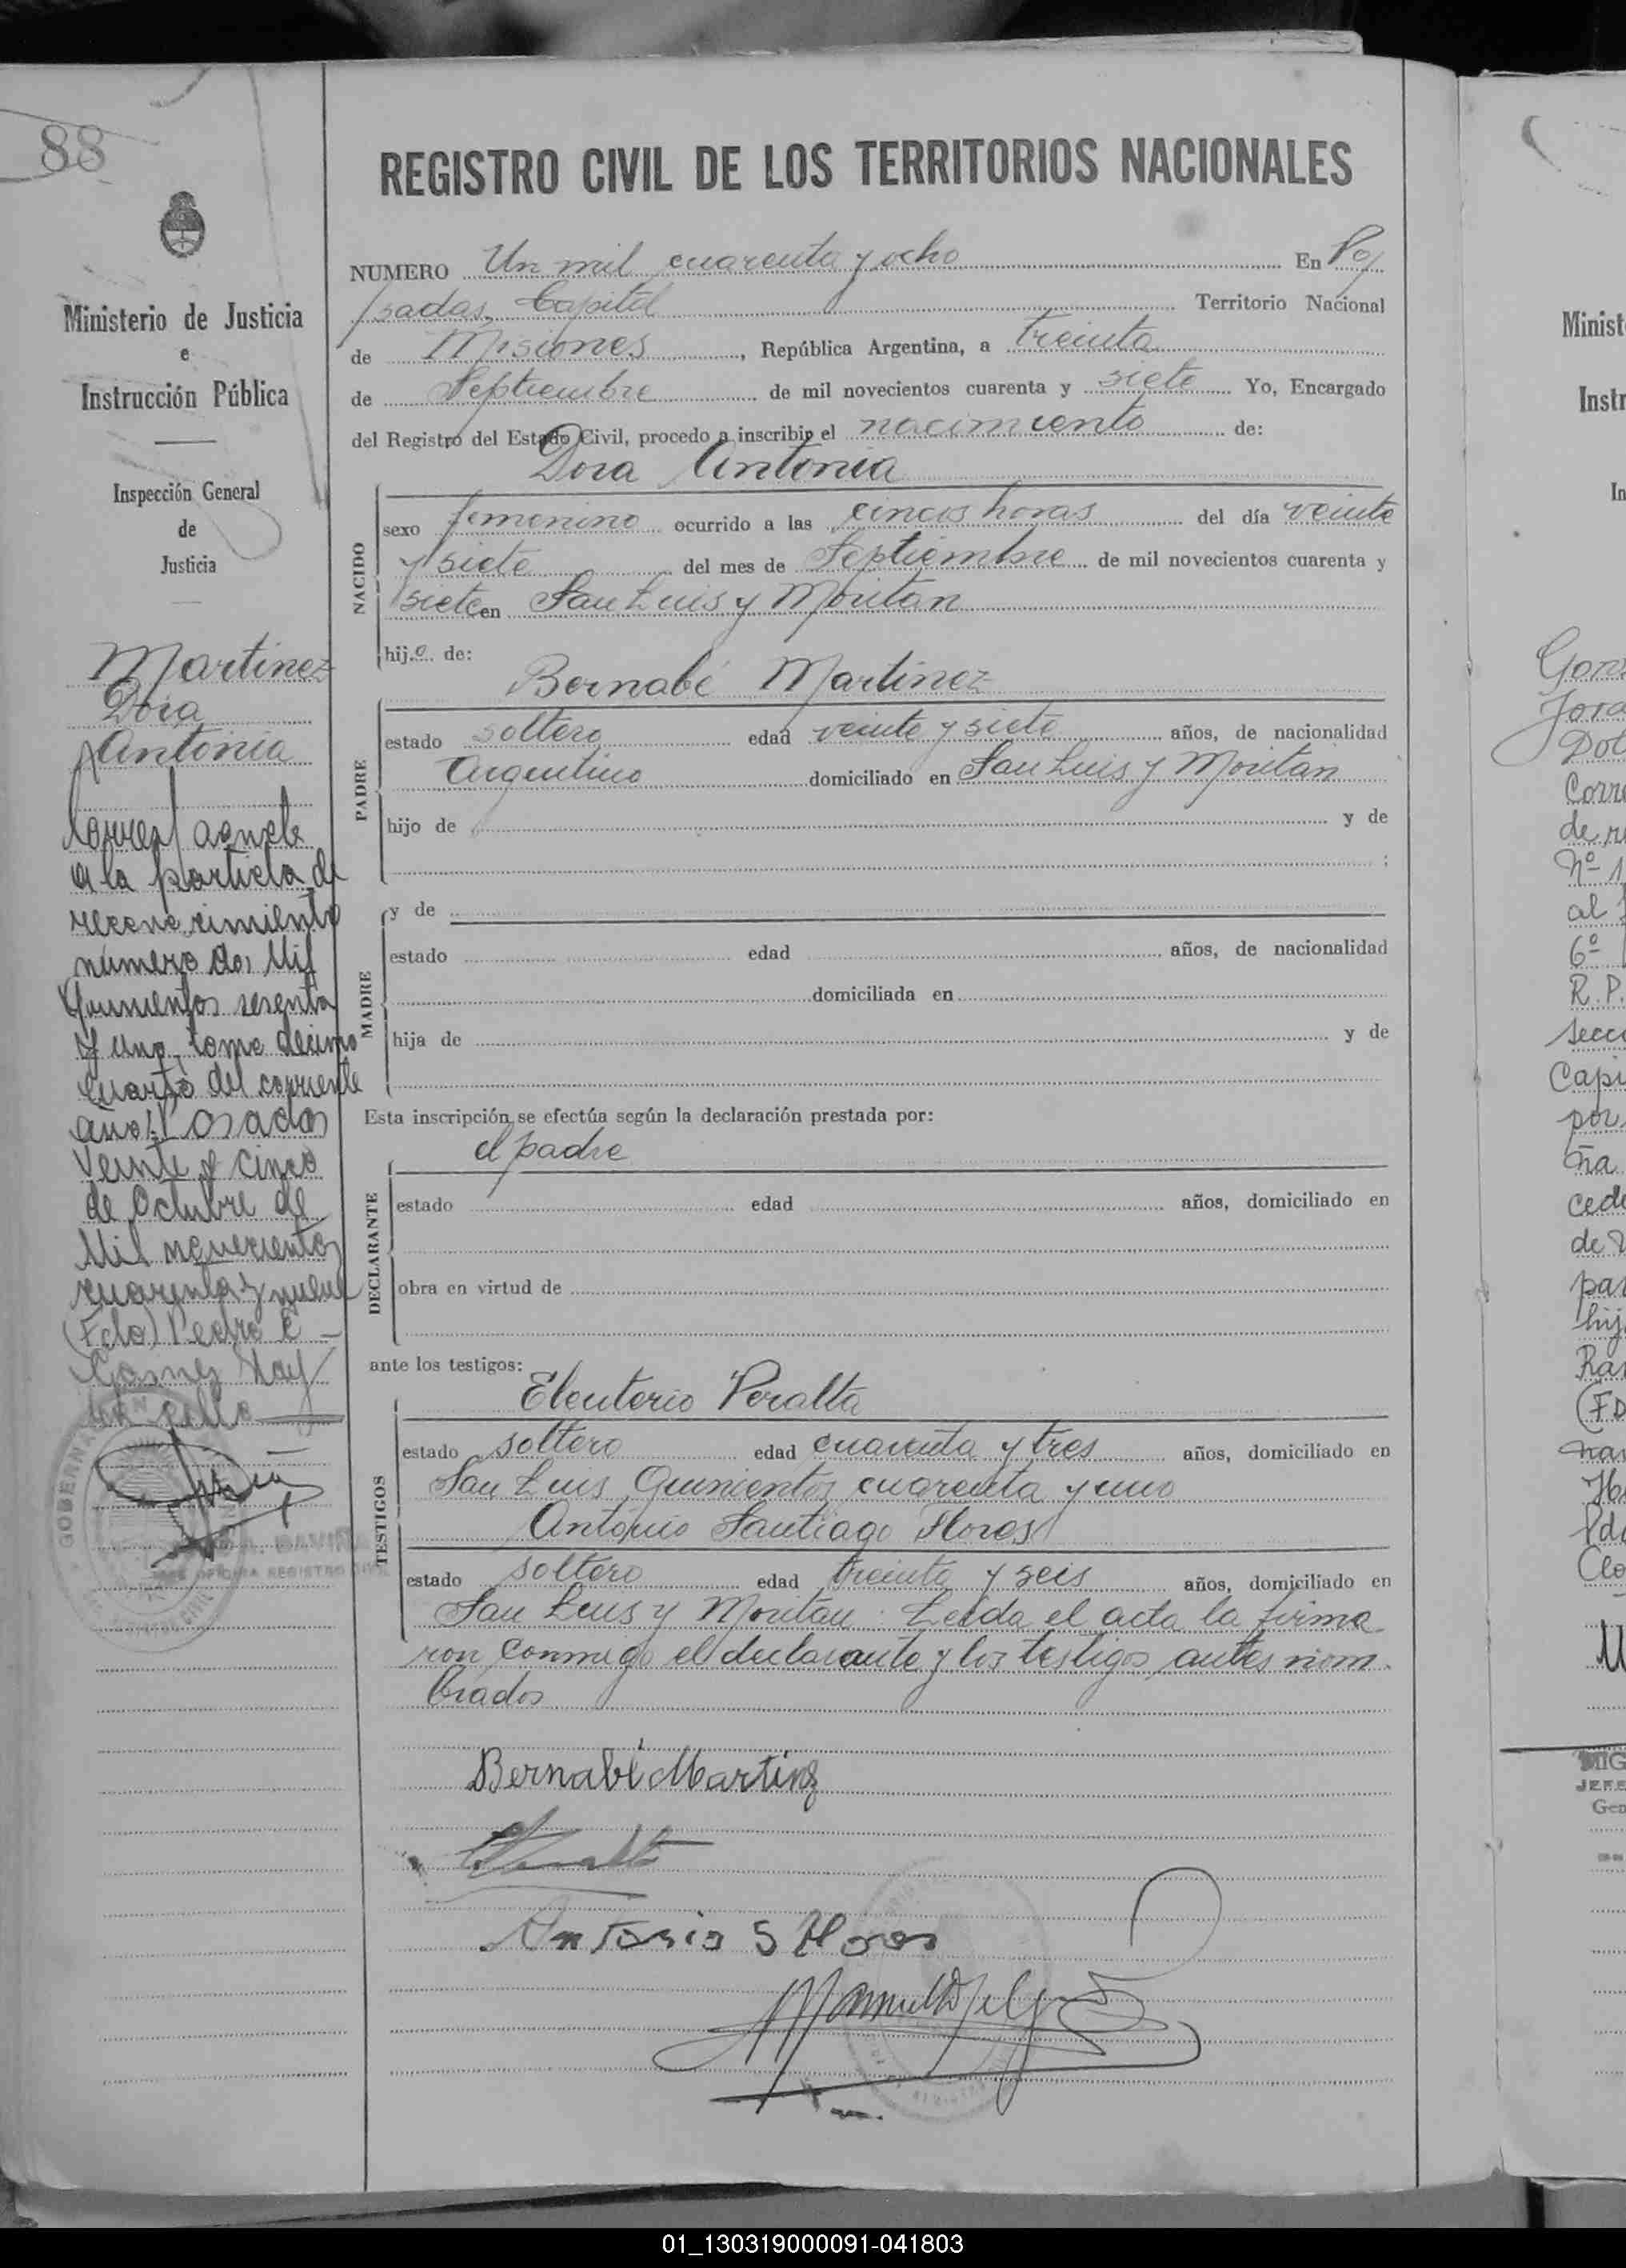 88
Ministerio de Justicia
e
Instrucción Pública
Inspección General
de
Justicia
Martinez
Dora
Antonia
Corresp agnele
a la partida de
reconocimiento
número dos Mil
Quinientos sesenta
y uno, tomo décimo
cuarto del corriente
año: Posadas
Veinte y cinco
de Octubre de
Mil novecientos
cuarenta y nueve
(Fdo) Pedro E
Gomez
REGISTRO CIVIL DE LOS TERRITORIOS NACIONALES
NUMERO Un mil cuarenta y ocho En Po
sadas, Capital Territorio Nacional
de Misiones, República Argentina, a treinta
de Septiembre de mil novecientos cuarenta y siete Yo, Encargado
del Registro del Estado Civil, procedo a inscribir el nacimiento de:
Dora Antonia
NACIDO
sexo femenino ocurrido a las cinco horas del día veinte
y siete del mes de Septiembre de mil novecientos cuarenta y
siete en San Luis y Moritan
hija de:
Bernabé Martinez
PADRE
estado soltero edad veinte y siete años, de nacionalidad
Argentino domiciliado en San Luis y Moritan
hijo de y de
;
MADRE
y de
estado edad años, de nacionalidad
domiciliada en
hija de y de
Esta inscripción se efectúa según la declaración prestada por:
el padre
DECLARANTE
estado edad años, domiciliado en
obra en virtud de
ante los testigos:
Eleuterio Peralta
TESTIGOS
estado soltero edad cuarenta y tres años, domiciliado en
San Luis Quinientos cuarenta y uno
Antonio Santiago Flores
estado soltero edad treinta y seis años, domiciliado en
San Luis y Moritan: Leída el acta la firma
ron conmigo el declarante y los testigos antes nom
brados
Bernabé Martinez
Antonio S Flores
Minist
Instr
In
Corre
de re
al
6º
R.P.
secc
Capi
por
ña
cede
de
par
hij
JEFE
01_130319000091-041803